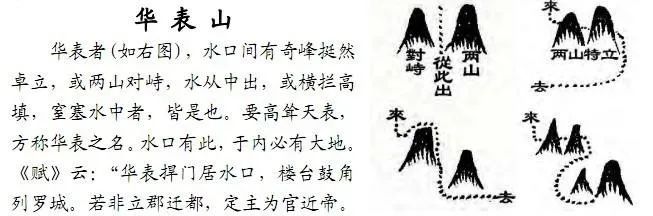 华表山
华表者(如右图),水口间有奇峰挺然
卓立,或两山对峙,水从中出,或横拦高
填,窒塞水中者,皆是也。要高耸天表,
方称华表之名。水口有此,于内必有大地。
《赋》云:“华表捍门居水口,楼台鼓角
列罗城。若非立郡迁都,定主为官近帝。
對峙
從此出
两山
來
两山特立
去
來
去
來